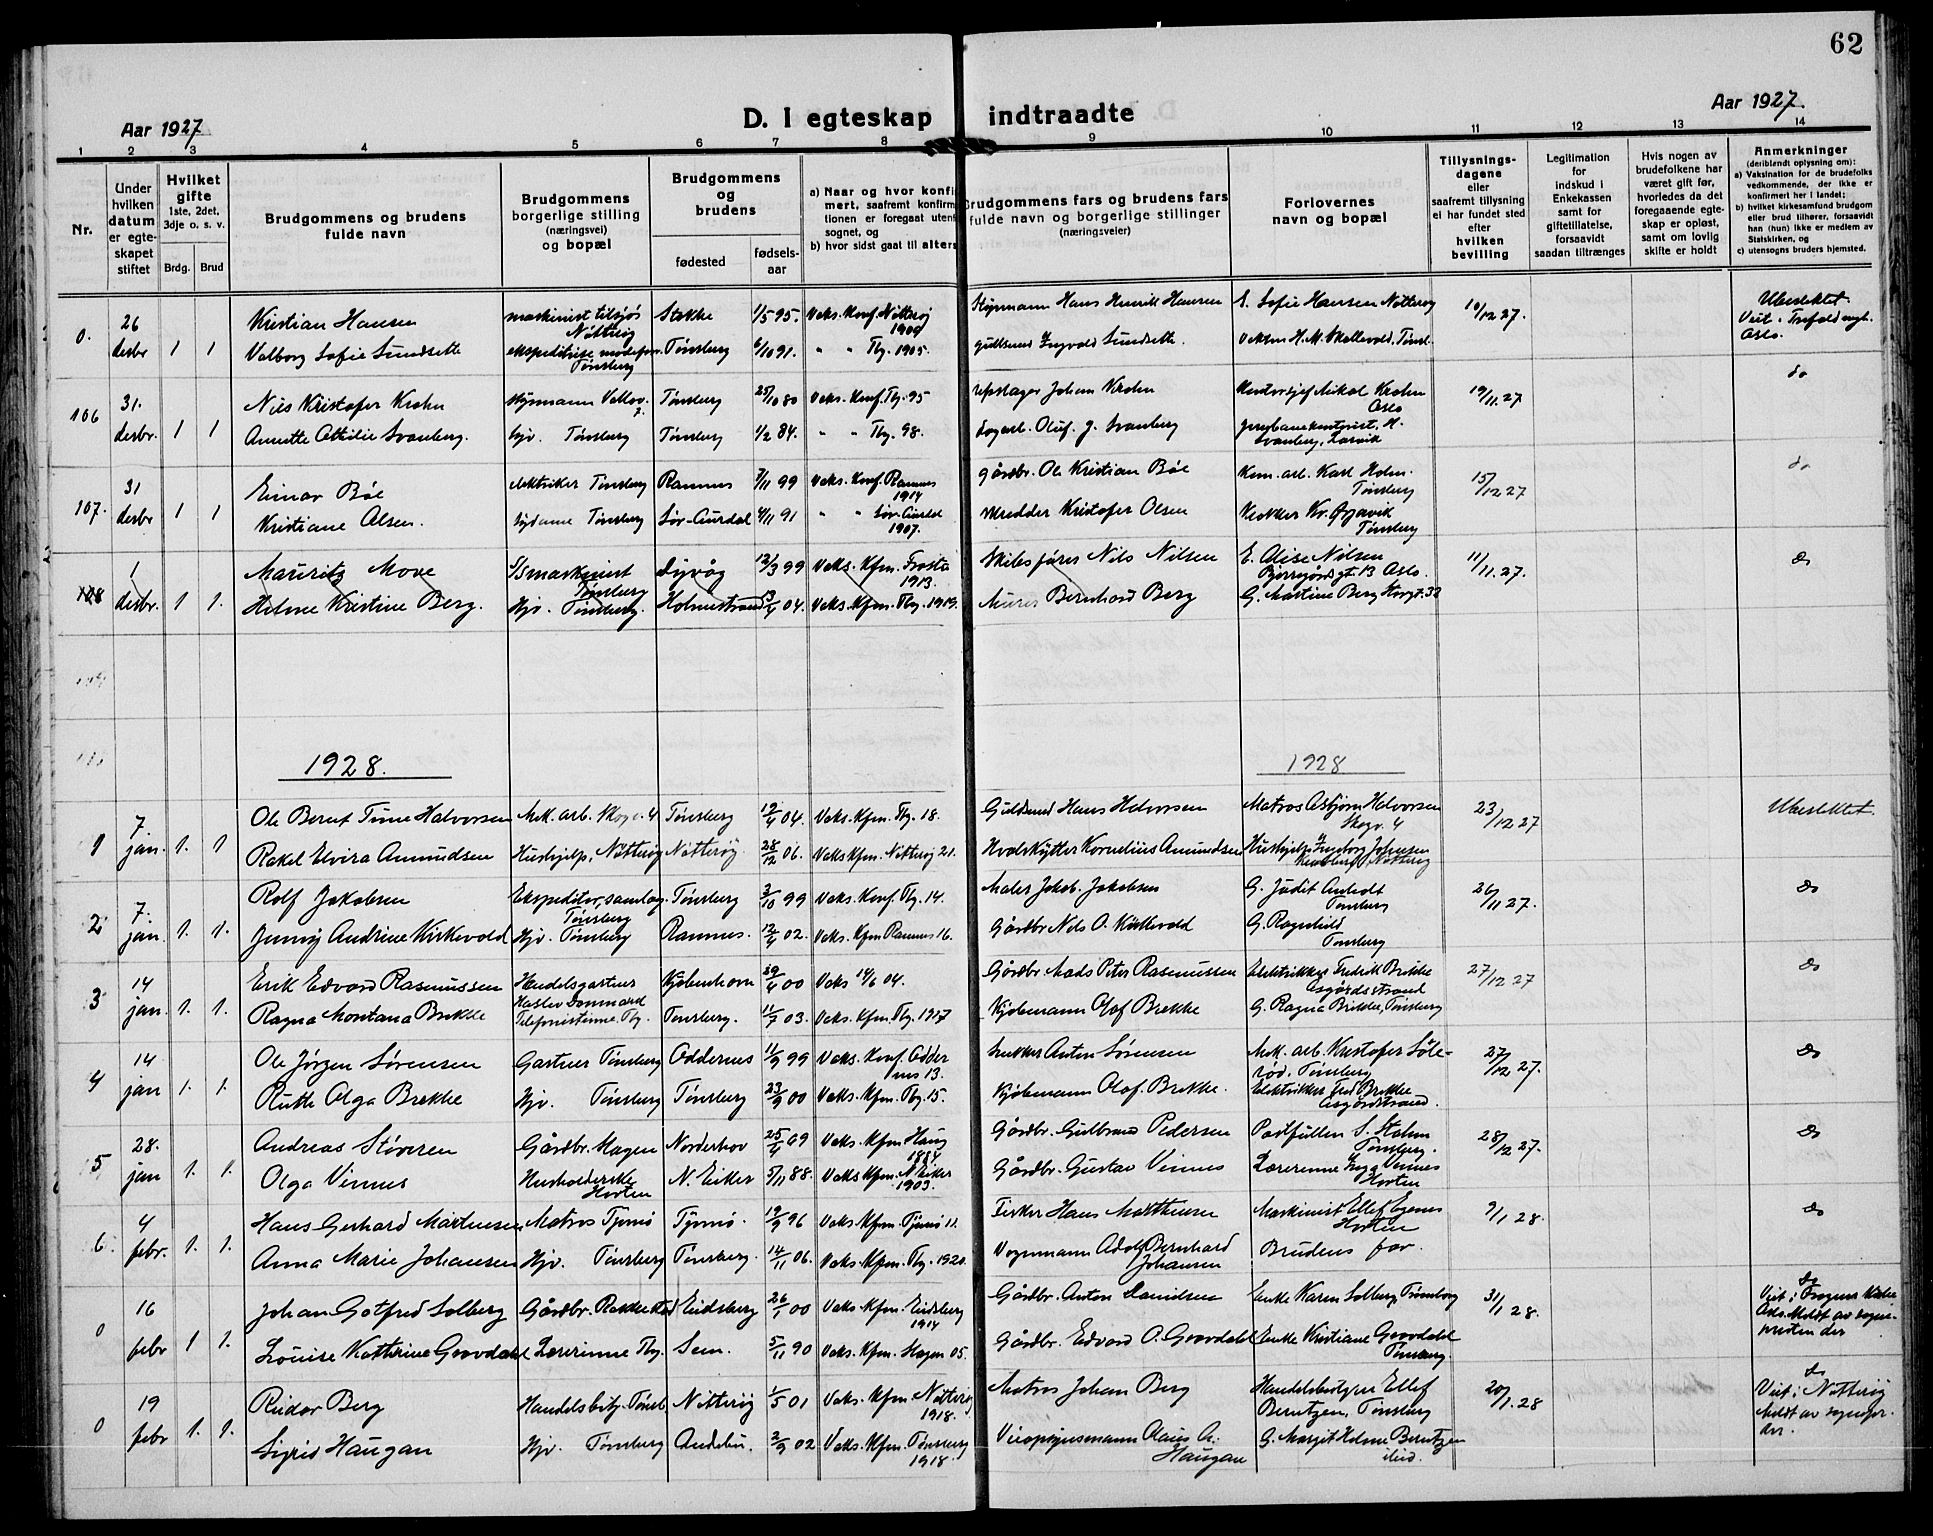 62
Aar 1927
D. I egteskap indtraadte
Aar 1927.
1 2 3 4 5 6 7 8 9 10 11 12 13 14
Nr.
Under hvilken datum er egteskapet stiftet
Hvilket gifte 1ste, 2det, 3dje o. s. v.
Brdg. Brud
Brudgommens og brudens fulde navn
Brudgommens borgerlige stilling (næringsvei) og bopæl
Brudgommens og brudens
fødested fødsels-aar
a) Naar og hvor konfirmert, saafremt konfirmtionen er foregaat utenf sognet, og
b) hvor sidst gaat til alters
Brudgommens fars og brudens fars fulde navn og borgerlige stillinger (næringsveier)
Forlovernes navn og bopæl
Tillysnings-dagene eller saafremt tillysning ei har fundet sted efter hvilken bevilling
Legitimation for indskud i Enkekassen samt for giftetillatelse, forsaavidt saadan tiltrænges
Hvis nogen av brudefolkene har været gift før, hvorledes da det foregaaende egteskap er opløst, samt om lovlig skifte er holdt
Anmerkninger (deriblandt oplysning om): a) Vaksination for de brudefolks vedkommende, der ikke er konfirmert her i landet; b) hvilket kirkesamfund brudgom eller brud tilhører, forsaavidt han (hun) ikke er medlem av Statskirken, og c) utensogns bruders hjemsted.
0. 26 desbr 1 1 Kristian Hansen maskinist tilsjøs Nøtterøy Stokke 1/5 95. Vaks. Konf. Nøtterøy 1909 Styrmann Hans Henrik Hansen E. Sofie Hansen Nøtterøy 10/12 27. Ubeslektet. Viet i Trefoldigh. Oslo.
Valborg Sofie Sundsette Tønsberg 6/10 91. " " Tbg. 1905. gullsmed Ingvald Sundsette.
106 31. desbr. 1 1 Nils Kristofer Krohn styrmann Tønsberg 25/10 80 Vaks. Konf. Tbg. 95 Johan Krohn Kontorsjef Mikal Krohn Oslo 19/11. 27. do
Annette Ottilie Svanberg. hjv. Tønsberg Tønsberg 1/2 84. " " Tbg. 98. Oluf J. Svanberg Svanberg, Larvik
107. 31 desbr 1 1 Einar Bøe elektriker Tønsberg Ramnes 7/11 99 Vaks. Konf. Ramnes 1914 gårdbr. Ole Kristian Bøe Kom. arb. Karl Holm. Tønsberg 15/12 27 do
Kristiane Olsen. Tønsberg Sør-Aurdal 4/11 91 " " Sør-Aurdal 1907. skredder Kristofer Olsen Tønsberg
108 1 desbr. 1 1. Mauritz Move S/S maskinist Tønsberg Dyvåg 12/3 99 Vaks. Kfm. Frosta 1913. Skibsfører Nils Nilsen E. Alise Nilsen Bjerregårdsgt. 13 Oslo. 11/11. 27. do
Helene Kristine Berg. Hjv. Tønsberg. Holmestrand 04. Vaks. Kfm. Tbg. 1919. Murer Bernhard Berg G. Martine Berg Storgt. 32
1928. 1928
1 7. jan. 1. 1 Ole Bernt Time Halvorsen Mek. arb. Skogv. 4 Tønsberg 12/4 04. Vaks. Kfm. Tbg. 18. Guldsmed Hans Halvorsen Matros Asbjørn Halvorsen Skogv. 4 23/12 27 Ubeslektet.
Rakel Elvira Amundsen Hushjelp, Nøtterøy Nøtterøy. 28/12 06. Vaks Kfm. Nøtterøy 21. Hvalskytter Kornelius Amundsen Hushjelp Ingeborg Johnsen Nøtterøy
2 7. jan. 1. 1. Rolf Jakobsen Ekspeditør, samlag. Tønsberg Tønsberg 3/10 99 Vaks. Konf. Tbg. 14. Maler Jakob Jakobsen G. Judit Tønsberg 26/11 27. do
Jenny Andrine Kirkevold Hjv. Tønsberg Ramnes. 12/4 02. Vaks. Kfm Ramnes 16. Gårdbr Nils O. Kirkevold G. Ragnhild Tønsberg
3 14 jan. 1. 1. Erik Edvard Rasmussen Handelsgartner Haslev Danmark Kjøbenhavn 29/4 00 Vaks 14/6 04. Gårdbr Mads Peter Rasmussen Elektriker Fredrik Brekke Åsgårdsstrand 27/12 27 do
Ragna Montana Brekke Telefonistinne Tbg. Tønsberg. 11/7 03. Vaks. Kfm. Tbg. 1917 Kjøbmann Olaf Brekke G. Ragna Brekke, Tønsberg
4 14 jan 1. 1. Ole Jørgen Sørensen Gartner Tønsberg Oddernes 11/9 99 Vaks. Konf. Oddernes 13. Snekker Anton Sørensen Mek. arb. Kristofer Sølerød, Tønsberg 27/12 27. do
Ruth Olga Brekke Hjv. Tønsberg Tønsberg 23/9 00 Vaks. Kfm. Tbg. 15. Kjøbmann Olaf Brekke. Elektriker Fred Brekke Åsgårdstrand.
5 28. jan 1. 1. Andreas Støveren Gårdbr. Slagen Norderhov 25/4 69 Vaks. Kfm Haug 1884 Gårdbr. Gulbrand Pedersen S. Holm Tønsberg. 28/12 27. do
Olga Vinnes Husholderske Horten N. Eiker 5/11 88. Vaks Kfm. N. Eiker 1903. Gårdbr. Gustav Vinnes Lærerinne Inga Vinnes Horten
6. 4 febr. 1. 1. Hans Gerhard Martinsen Matros Tjømø Tjømø. 12/9 96 Vaks. Kfm. Tjømø 11. Fisker Hans Matthisen Maskinist Ellef Egenes Horten 9/1 28. do
Anna Marie Johansen Hjv. Tønsberg Tønsberg. 14/11 06. Vaks. Kfm. Tbg. 1920. Vognmann Adolf Bernhard Johansen Brudens far.
0 16 febr 1 1. Johan Gotfred Solberg Gårdbr. Rakkestad Eidsberg 26/1 00 Vaks. Kfm. Eidsberg 1914 Gårdbr. Anton Danielsen Enke Karen Solberg, Trømborg 31/1 28. do Viet i Frogner Kirke Oslo. Meldt av sognepresten der
Louise Kathrine Gravdahl Lærerinne Tbg. Sem. 5/11 90 Vaks. Kfm. Slagen 05. Gårdbr. Edvard O. Gravdahl Enke Kristiane Gravdahl Tønsberg.
0 19 febr 1. 1. Reidar Berg Handelsbety. Tønsb. Nøtterøy 1/5 01 Vaks. Kfm. Nøtterøy 1918. Matros Johan Berg Handelsbestyrer Ellef Berntzen, Tønsberg 20/1. 28 do Viet i Nøtterøy Meldt av sognepr. der.
Sigrid Haugan Hjv. Tønsberg Andebu. 2/9 02 Vaks. Kfm. Tønsberg 1918. Olaus A. Haugan G. Margit Helene Berntzen ibid.